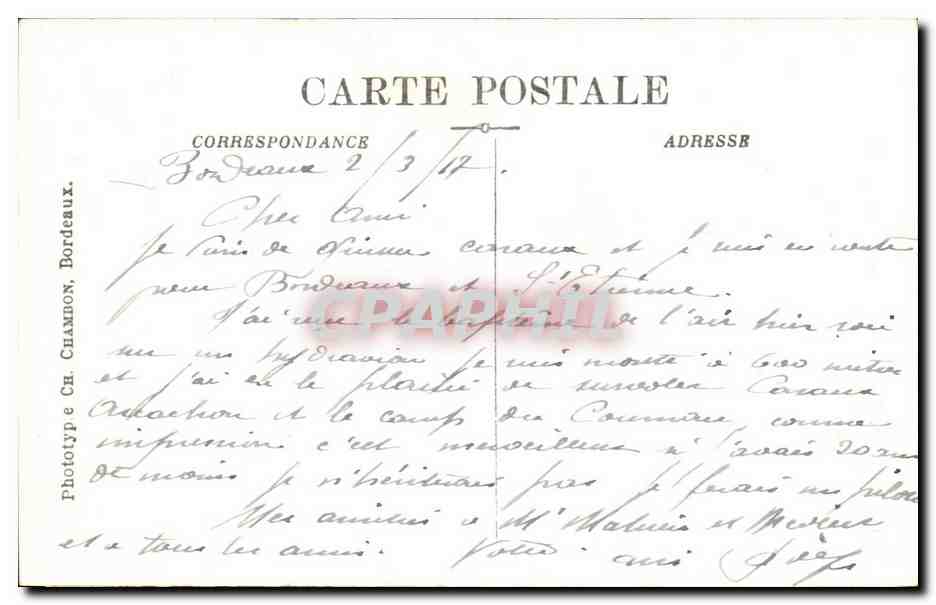 CARTE POSTALE
CORRESPONDANCE
ADRESSE
Phototypie CH. CHAMBON, Bordeaux.
CPAPHIL
Bordeaux 2/3/17.
Cher ami
Je de et je suis en route
pour Bordeaux et St-Etienne.
J'ai le baptème de l'air hier soir
sur un hydravion je suis monté à 600 mètres
et j'ai eu le plaisir de survoler Cazaux
Arcachon et le camp du Courneau, comme
impression c'est merveilleux si j'avais 20 ans
de moins je n'hésiterais pas je ferais un pilote
Mes amitiés à Mr et
et à tous les amis. Votre ami